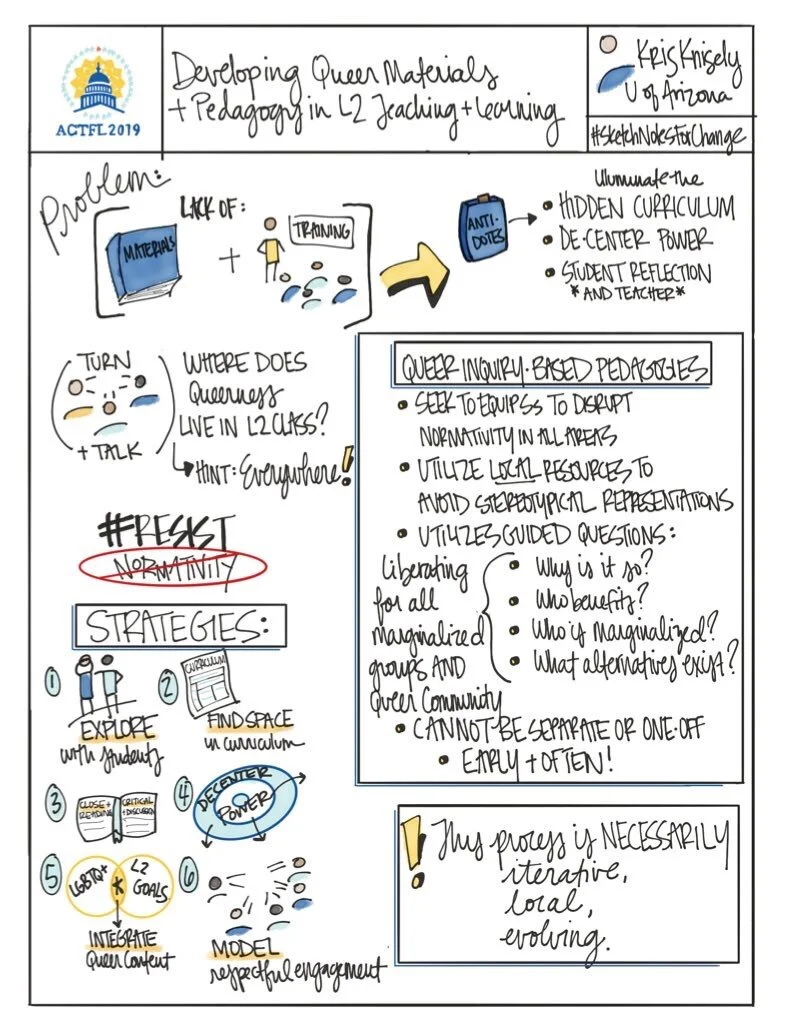 ACTFL2019
Developing Queer Materials
+ Pedagogy in L2 Teaching + Learning
Kris Knisely
U of Arizona
#SketchNotesForChange
Problem:
LACK OF:
MATERIALS
+
TRAINING
ANTI-
DOTES
Illuminate the
• HIDDEN CURRICULUM
• DE-CENTER POWER
• STUDENT REFLECTION
*AND TEACHER*
TURN
+ TALK
WHERE DOES
Queerness
LIVE IN L2 CLASS?
HINT: Everywhere!
#RESIST
NORMATIVITY
STRATEGIES:
1
EXPLORE
with students
2
CURRICULUM
FIND SPACE
in curriculum
3
CLOSE +
READING
CRITICAL
+ DISCUSSION
4
DECENTER
POWER
5
LGBTQ+
*
L2
GOALS
INTEGRATE
Queer Content
6
MODEL
respectful engagement
QUEER INQUIRY-BASED PEDAGOGIES
• SEEK TO EQUIP SS TO DISRUPT
NORMATIVITY IN ALL AREAS
• UTILIZE LOCAL RESOURCES TO
AVOID STEREOTYPICAL REPRESENTATIONS
• UTILIZES GUIDED QUESTIONS:
Liberating
for all
marginalized
groups AND
Queer Community
• Why is it so?
• Who benefits?
• Who is marginalized?
• What alternatives exist?
• CANNOT BE SEPARATE OR ONE-OFF
• EARLY + OFTEN!
! This process is NECESSARILY
iterative,
local,
evolving.